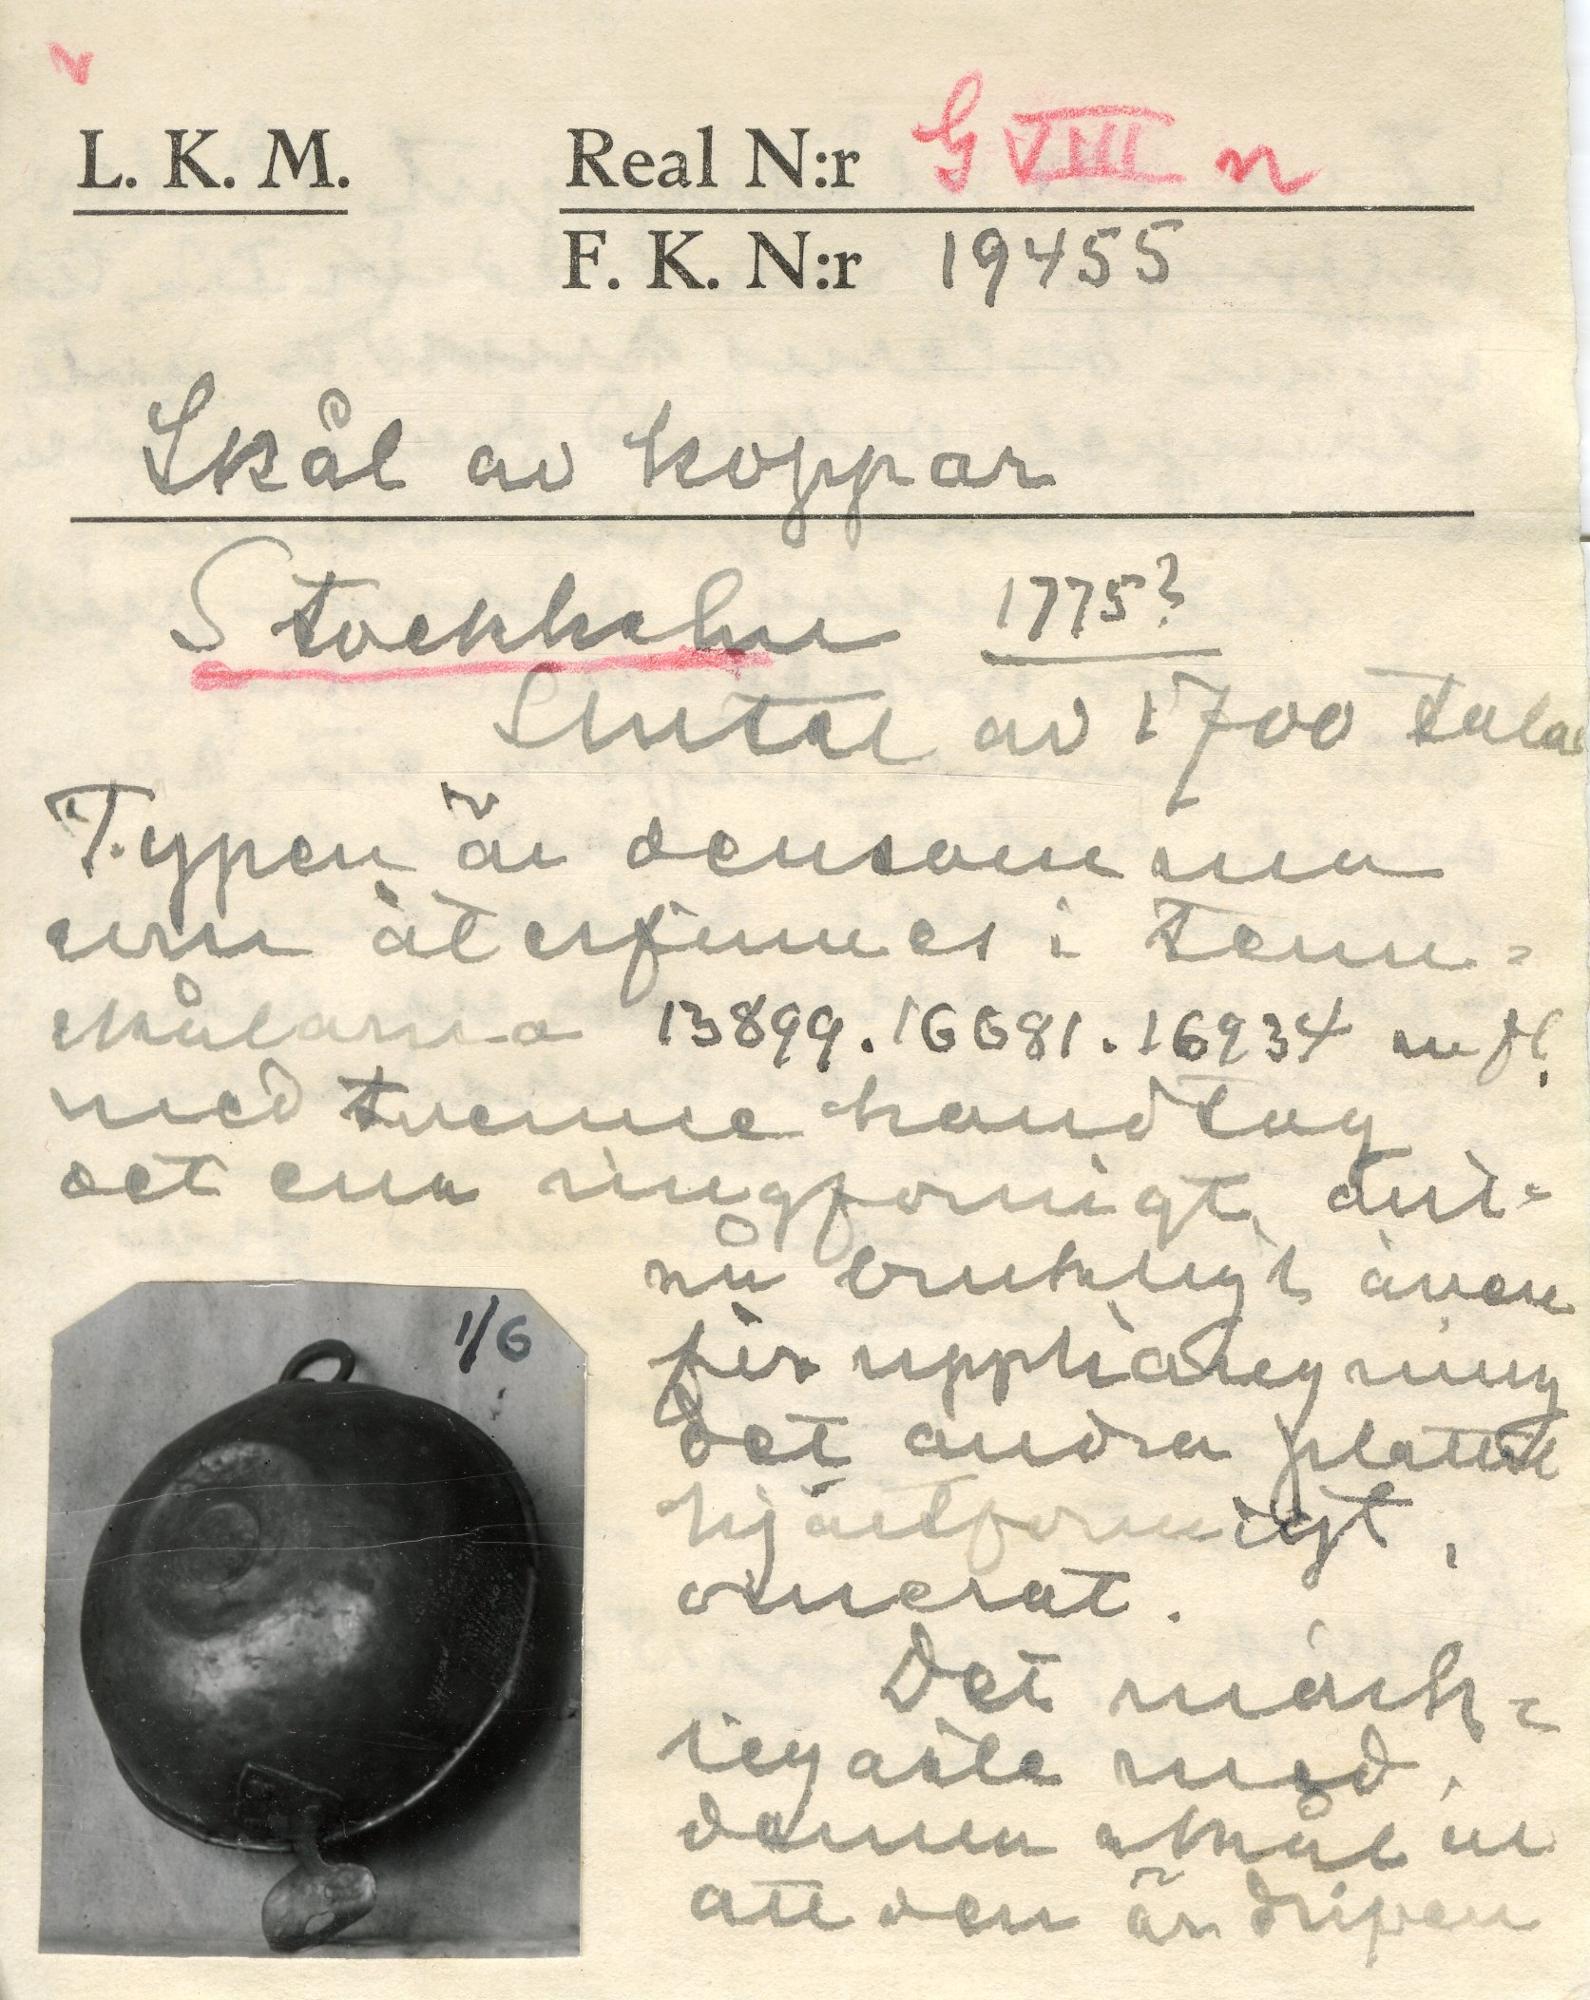 L. K. M.
Real N:r G VIII n
F. K. N:r 19455
Skål av koppar
Stockholm 1775?
Slutet av 1700 talet
Typen är densamma
som återfinnes i tenn-
skålarna 13899. 16681. 16934 m fl.
med tvenne handtag
det ena ringformigt,
nu brukligt även
för upphängning
det andra platt
hjärtformigt,
ornerat.
Det märk-
ligaste med
denna skål är
att den är dripen
1/6